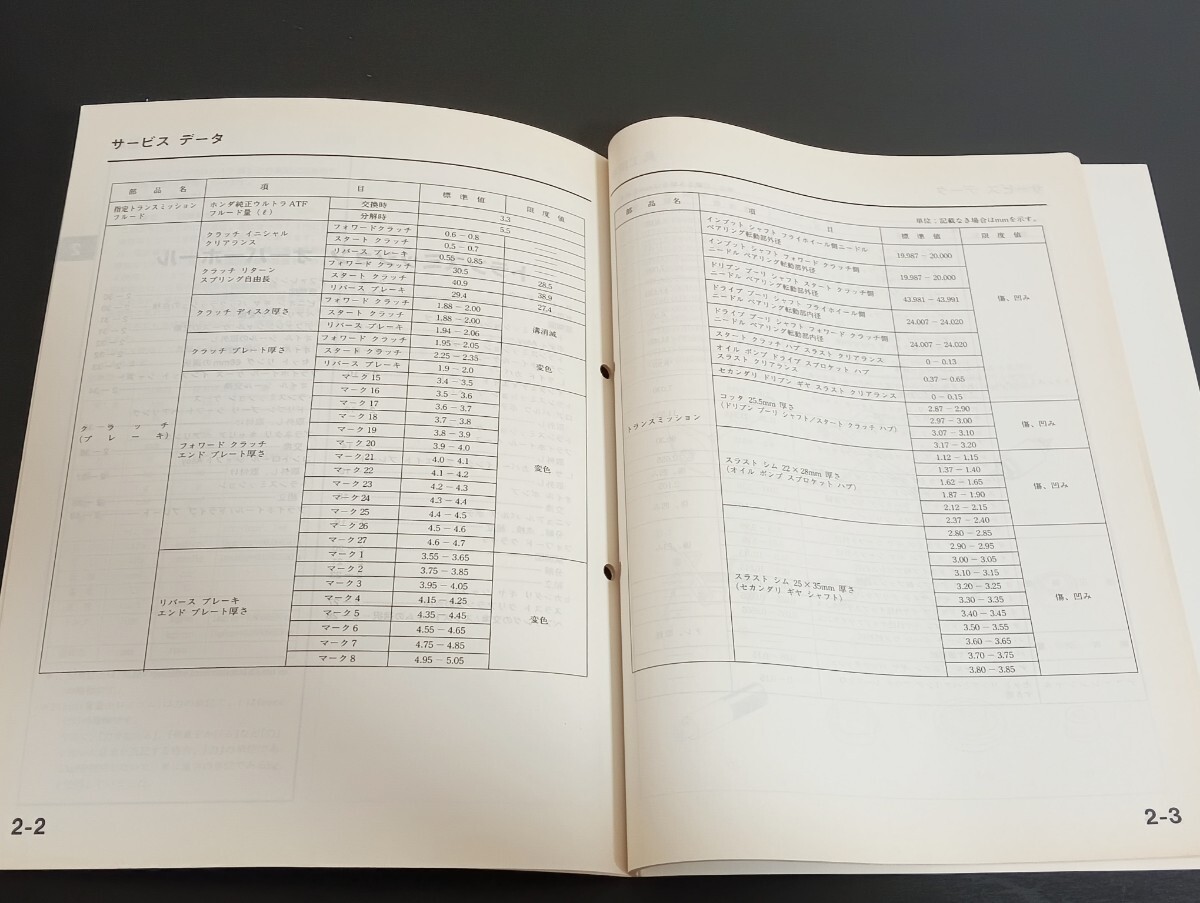 サービス データ
部 品 名 項 目 標 準 値 限 度 値
指定トランスミッション
フルード
ホンダ純正ウルトラATF
フルード量(ℓ)
交換時 3.3
分解時 5.5
ク ラ ッ チ
(ブ レ ー キ)
クラッチ イニシャル
クリアランス
フォワードクラッチ 0.6－0.8 ――
スタート クラッチ 0.5－0.7 ――
リバース ブレーキ 0.55－0.85 ――
クラッチ リターン
スプリング自由長
フォワード クラッチ 30.5 28.5
スタート クラッチ 40.9 38.9
リバース ブレーキ 29.4 27.4
クラッチ ディスク厚さ
フォワード クラッチ 1.88－2.00
スタート クラッチ 1.88－2.00
リバース ブレーキ 1.94－2.06
溝消滅
クラッチ プレート厚さ
フォワード クラッチ 1.95－2.05
スタート クラッチ 2.25－2.35
リバース ブレーキ 1.9－2.0
変色
フォワード クラッチ
エンド プレート厚さ
マーク15 3.4－3.5
マーク16 3.5－3.6
マーク17 3.6－3.7
マーク18 3.7－3.8
マーク19 3.8－3.9
マーク20 3.9－4.0
マーク21 4.0－4.1
マーク22 4.1－4.2
マーク23 4.2－4.3
マーク24 4.3－4.4
マーク25 4.4－4.5
マーク26 4.5－4.6
マーク27 4.6－4.7
変色
リバース ブレーキ
エンド プレート厚さ
マーク1 3.55－3.65
マーク2 3.75－3.85
マーク3 3.95－4.05
マーク4 4.15－4.25
マーク5 4.35－4.45
マーク6 4.55－4.65
マーク7 4.75－4.85
マーク8 4.95－5.05
変色
2-2
単位：記載なき場合はmmを示す。
部 品 名 項 目 標 準 値 限 度 値
トランスミッション
インプット シャフト フライホイール側ニードル
ベアリング転動部外径
19.987－20.000
インプット シャフト フォワード クラッチ側
ニードル ベアリング転動部外径
19.987－20.000
ドリブン プーリ シャフト スタート クラッチ側
ニードル ベアリング転動部外径
43.981－43.991
ドライブ プーリ シャフト フライホイール側
ニードル ベアリング転動部内径
24.007－24.020
ドライブ プーリ シャフト フォワード クラッチ側
ニードル ベアリング転動部内径
24.007－24.020
スタート クラッチ ハブ スラスト クリアランス 0－0.13
オイル ポンプ ドライブ スプロケット ハブ
スラスト クリアランス
0.37－0.65
セカンダリ ドリブン ギヤ スラスト クリアランス 0－0.15
傷、凹み
コッタ 25.5mm 厚さ
(ドリブン プーリ シャフト/スタート クラッチ ハブ)
2.87－2.90
2.97－3.00
3.07－3.10
3.17－3.20
傷、凹み
スラスト シム 22×28mm 厚さ
(オイル ポンプ スプロケット ハブ)
1.12－1.15
1.37－1.40
1.62－1.65
1.87－1.90
2.12－2.15
2.37－2.40
傷、凹み
スラスト シム 25×35mm 厚さ
(セカンダリ ギヤ シャフト)
2.80－2.85
2.90－2.95
3.00－3.05
3.10－3.15
3.20－3.25
3.30－3.35
3.40－3.45
3.50－3.55
3.60－3.65
3.70－3.75
3.80－3.85
傷、凹み
2-3